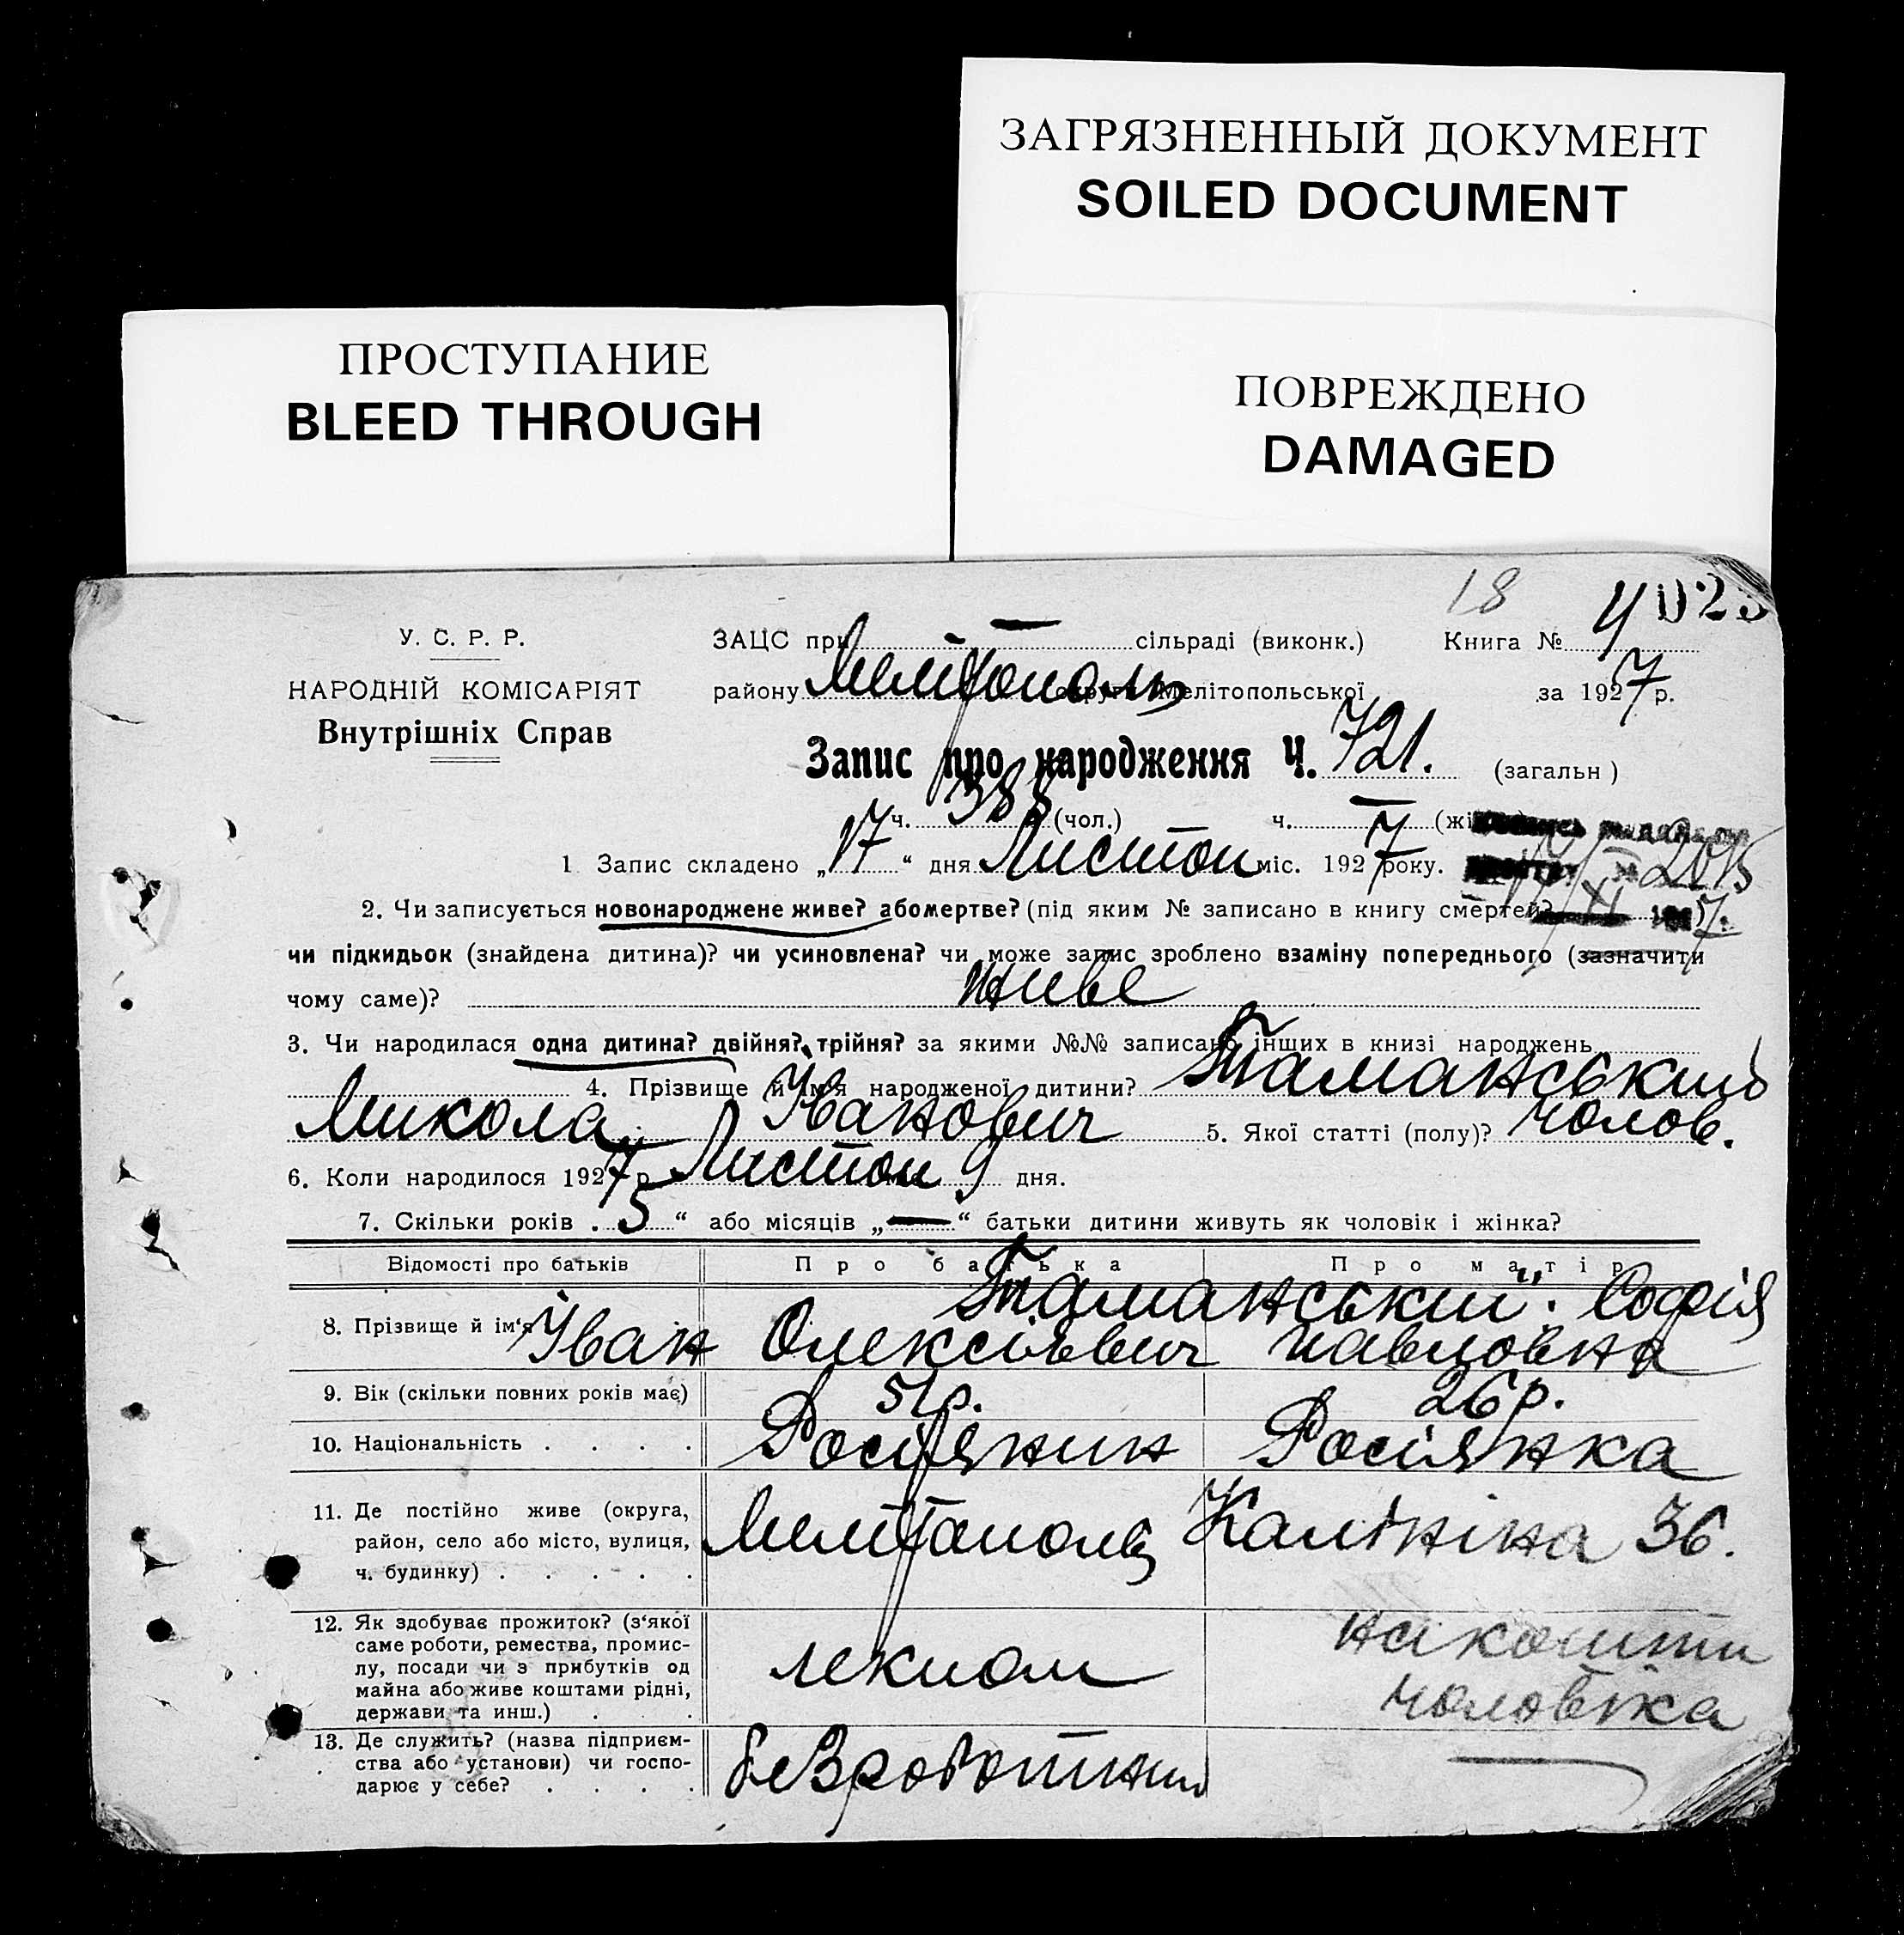 ЗАГРЯЗНЕННЫЙ ДОКУМЕНТ
SOILED DOCUMENT
ПРОСТУПАНИЕ
BLEED THROUGH
ПОВРЕЖДЕНО
DAMAGED
18
У. С. Р. Р.
НАРОДНІЙ КОМІСАРІЯТ
Внутрішніх Справ
ЗАЦС при — сільраді (виконк.) Книга № 4
району Мелітополь округи Мелітопольської за 1927 р.
Запис про народження Ч. 721. (загальн)
ч. 388 (чол.) ч. —
1 Запис складено „17“ дня Листоп міс. 1927 року.
2. Чи записується новонароджене живе? або мертве? (під яким № записано в книгу смертей?
чи підкидьок (знайдена дитина)? чи усиновлена? чи може запис зроблено взаміну попереднього (зазначити
чому саме)? живе
3. Чи народилася одна дитина? двійня? трійня? за якими №№ записано інших в книзі народжень
4. Прізвище й ім'я народженої дитини? Таманський
Микола Іванович 5. Якої статті (полу)? чолов.
6. Коли народилося 1927 р. Листоп 9 дня.
7. Скільки років „5“ або місяців „—“ батьки дитини живуть як чоловік і жінка?
Відомості про батьків Про батька Про матір
Таманський. Софія
8. Прізвище й ім'я Іван Олексієвич Павловна
9. Вік (скільки повних років має) 51р. 26р.
10. Національність . . . . Росіянин Росіянка
11. Де постійно живе (округа,
район, село або місто, вулиця,
ч. будинку) . . . . .
Мелітополь Калініна 36.
12. Як здобуває прожиток? (з'якої
саме роботи, ремества, промис-
лу, посади чи з прибутків од
майна або живе коштами рідні,
держави та инш.) . . .
на кошти
чоловіка
13. Де служить? (назва підприєм-
ства або установи) чи госпо-
дарює у себе? . . . .
безроботний